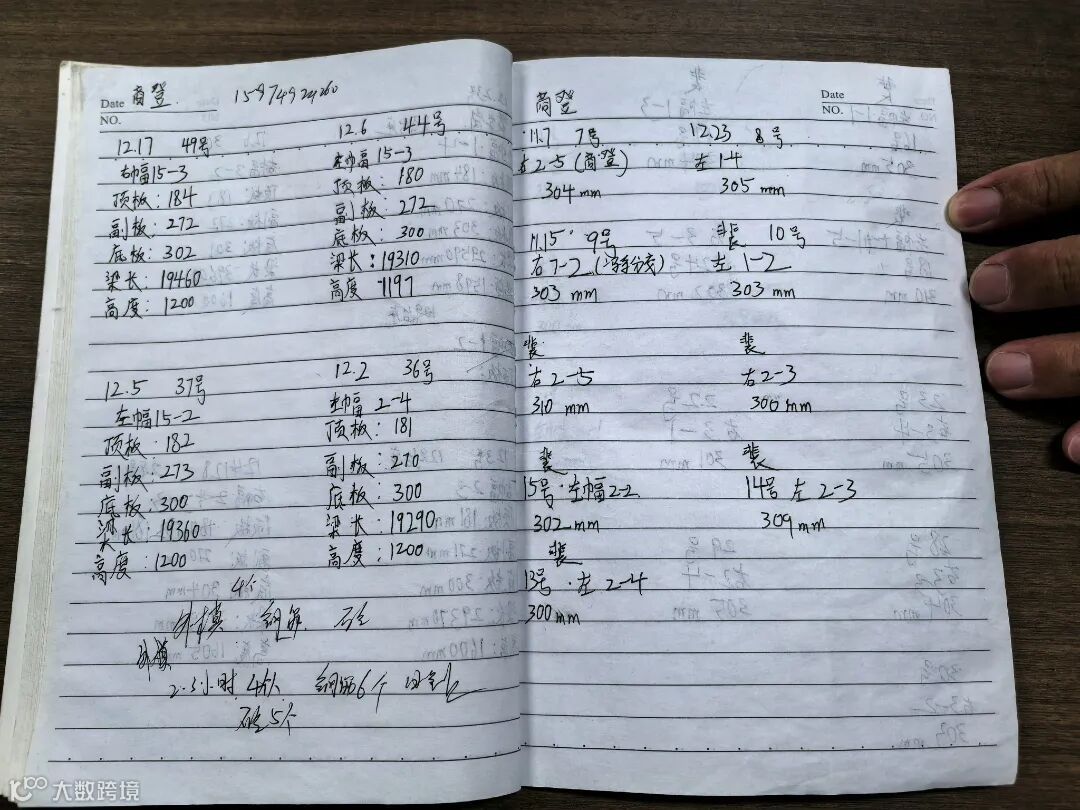 Date 商登. 15974924260
NO.
12.17 49号
右幅15-3
顶板:184
副板:272
底板:302
梁长:19460
高度:1200
12.6 44号
左幅15-3
顶板:180
副板:272
底板:300
梁长:19310
高度:1197
12.5 37号
左幅15-2
顶板:182
副板:273
底板:300
梁长:19360
高度:1200
12.2 36号
左幅2-4
顶板:181
副板:270
底板:300
梁长:19290
高度:1200
4个
外模 钢筋 砼
外模
2.3小时 4个人 钢筋6个
砼5个
商登 Date
NO.
11.7 7号
右2-5(商登)
304mm
12.23 8号
左1-4
305mm
11.15 9号
303mm
裴 10号
左1-2
303mm
裴
右2-5
310mm
裴
右2-3
300mm
裴
15号·左幅2-2
302mm
裴
14号 左2-3
309mm
裴
13号·左2-4
300mm
大数跨境